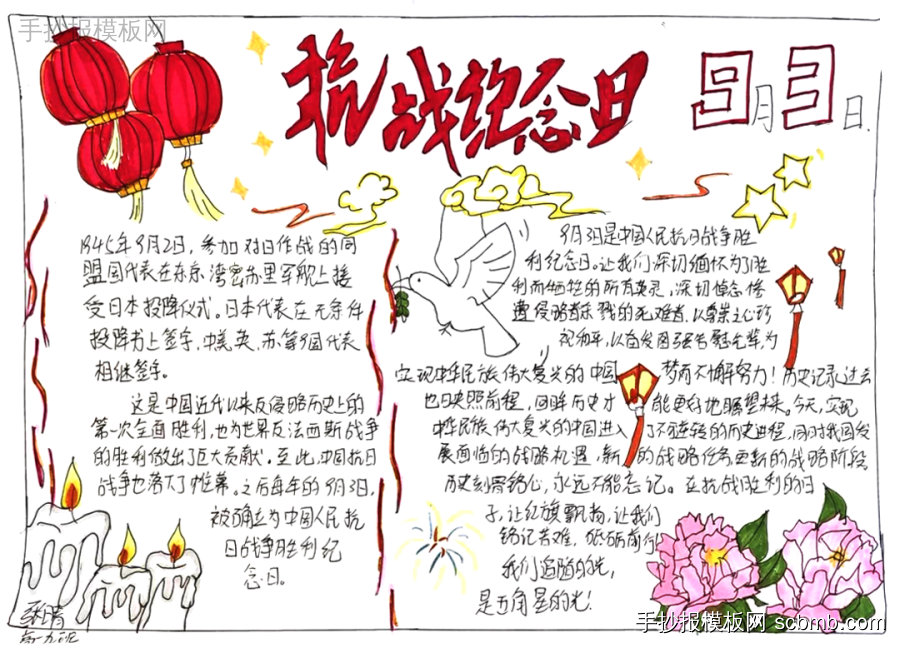 手抄报模板网
抗战纪念日
9月3日.
1945年9月2日，参加对日作战的同
盟国代表在东京湾密苏里军舰上接
受日本投降仪式。日本代表在无条件
投降书上签字，中、美、英、苏等9国代表
相继签字。
这是中国近代以来反侵略历史上的
第一次全面胜利，也为世界反法西斯战争
的胜利做出了巨大贡献。至此，中国抗日
战争也落下了帷幕。之后每年的9月3日，
被确立为中国人民抗
日战争胜利纪
念日。
9月3日是中国人民抗日战争胜
利纪念日。让我们深切缅怀为了胜
利而牺牲的所有英灵，深切悼念惨
遭侵略者杀戮的死难者，以崇荣之心珍
视和平，以自发图强告慰先辈，为
实现中华民族伟大复兴的中国梦而不懈努力！历史记录过去
也日映照前程，回眸历史才能更好地瞩望未来。今天，实现
中华民族伟大复兴的中国进入了不可逆转的历史进程，同时我国发
展面临的战略机遇，新的战略任务更新的战略阶段
历史刻骨铭心，永远不能忘记。在抗战胜利的日
子，让红旗飘扬，让我们
铭记苦难，砥砺前行
我们追随的光，
是五角星的光！
手抄报模板网 scbmb.com